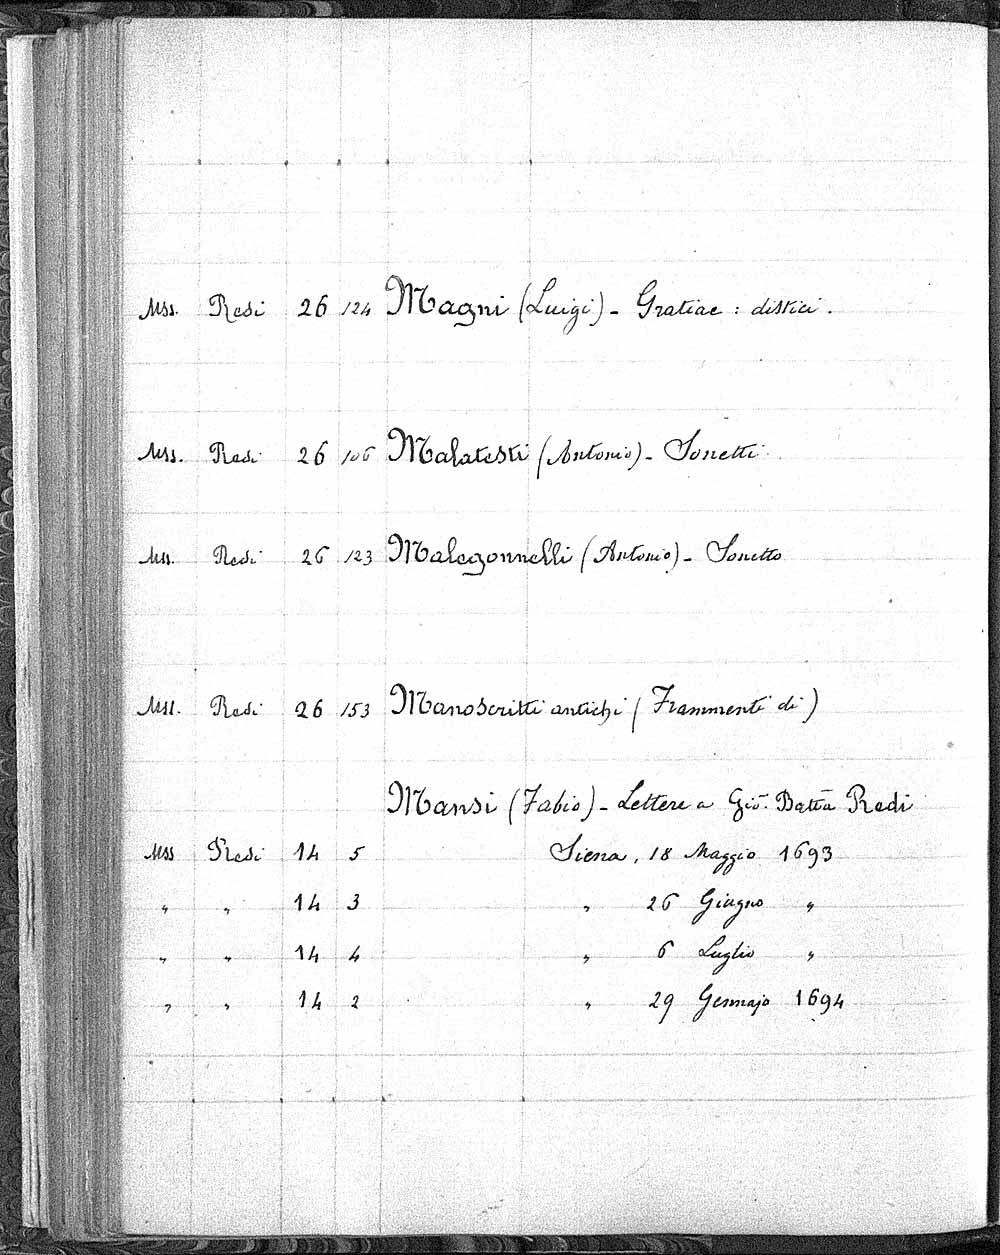 Mss. Redi 26 124 Magni (Luigi) - Gratiae : distici.
Mss. Redi 26 106 Malatesti (Antonio) - Sonetti
Mss. Redi 26 123 Malegonnelli (Antonio) - Sonetto
Mss. Redi 26 153 Manoscritti antichi (Frammenti di)
Mansi (Fabio) - Lettere a Gio. Batta Redi
Mss Redi 14 5 Siena, 18 Maggio 1693
" " 14 3 " 26 Giugno "
" " 14 4 " 6 Luglio "
" " 14 2 " 29 Gennajo 1694